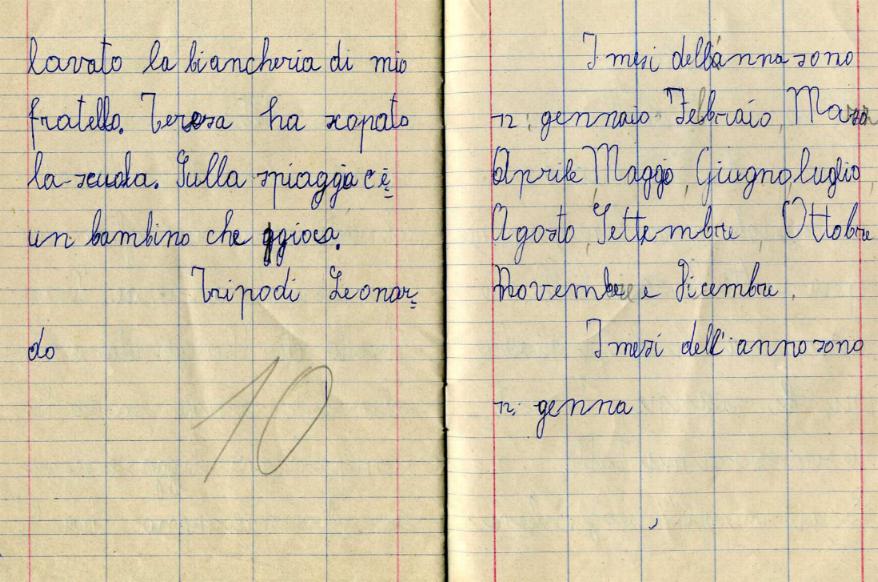 lavato la biancheria di mio
fratello. Teresa ha scopato
la scuola. Sulla spiaggia c'è
un bambino che ggioca.
Tripodi Leonar=
do
10
I mesi dell'anno sono
12: gennaio Febraio, Marzo
Aprile, Maggio, Giugno, luglio,
Agosto, Settembre, Ottobre
Novembre e Dicembre.
I mesi dell'anno sono
12: genna